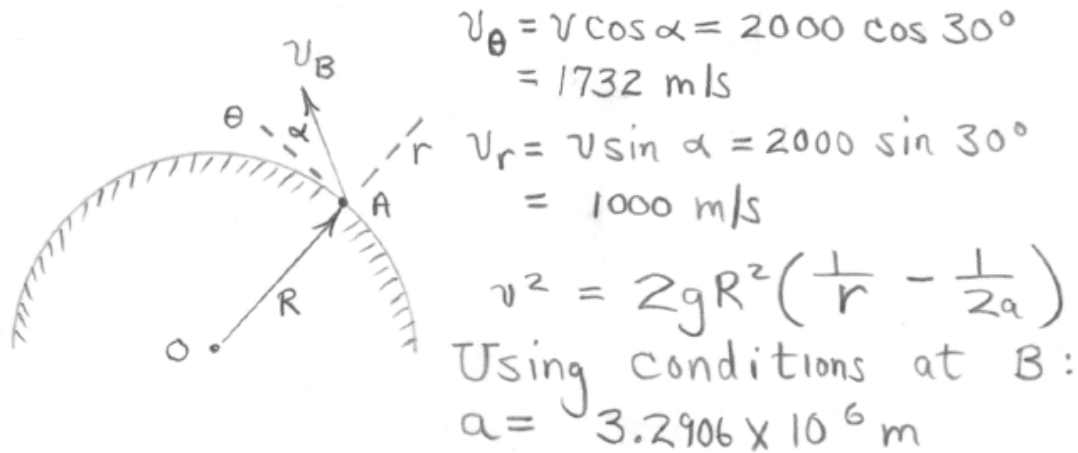 v_θ = v cos α = 2000 cos 30°
= 1732 m/s
v_r = v sin α = 2000 sin 30°
= 1000 m/s
v² = 2gR² (1/r - 1/2a)
Using conditions at B:
a = 3.2906 X 10⁶ m
v_B
θ
α
r
A
R
O